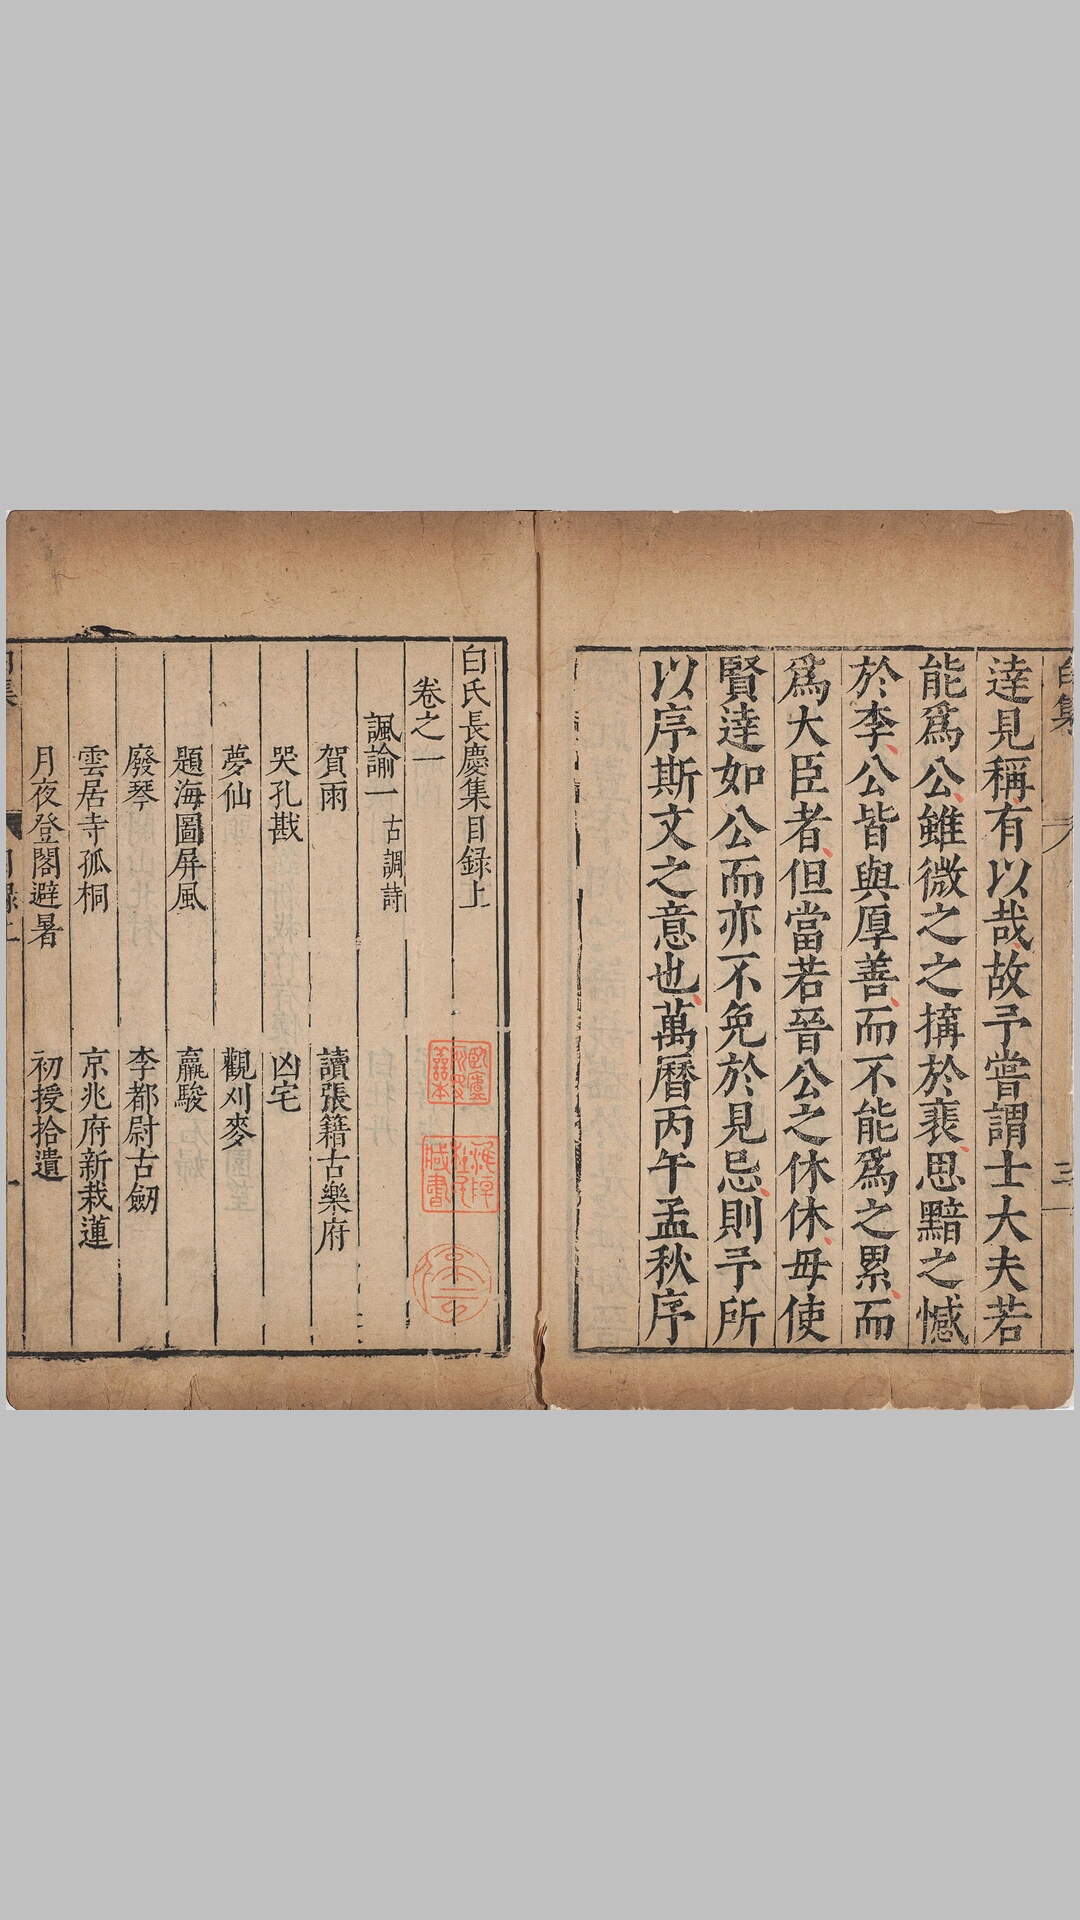 達見稱有以哉故予嘗謂士大夫若
能爲公雖微之之搆於裴思黯之憾
於李公皆與厚善而不能爲之累而
爲大臣者但當若晉公之休休毋使
賢達如公而亦不免於見忌則予所
以序斯文之意也萬曆丙午孟秋序
白氏長慶集目録上
卷之一
諷諭一 古調詩
賀雨 讀張籍古樂府
哭孔戡 凶宅
夢仙 觀刈麥
題海圖屏風 羸駿
廢琴 李都尉古劒
雲居寺孤桐 京兆府新栽蓮
月夜登閣避暑 初授拾遺